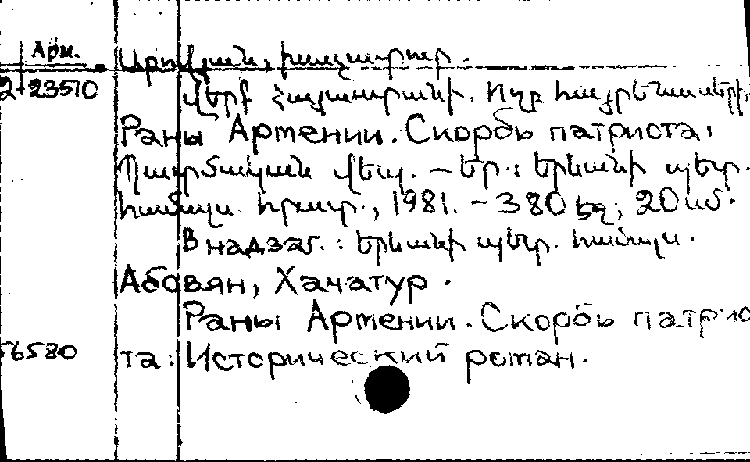 Арм.
Աբովյան, Խաչատուր.
2-23510
Վերք Հայաստանի. Ողբ հայրենասերի,
Раны Армении. Скорбь патриота:
Պատմական վեպ. – Եր.: Երևանի պետ.
համալս. հրատ., 1981. – 380 էջ; 20 սմ.
В надзаг.: Երևանի պետ. համալս.
Абовян, Хачатур.
Раны Армении. Скорбь патрио
56580
та: Исторический роман.